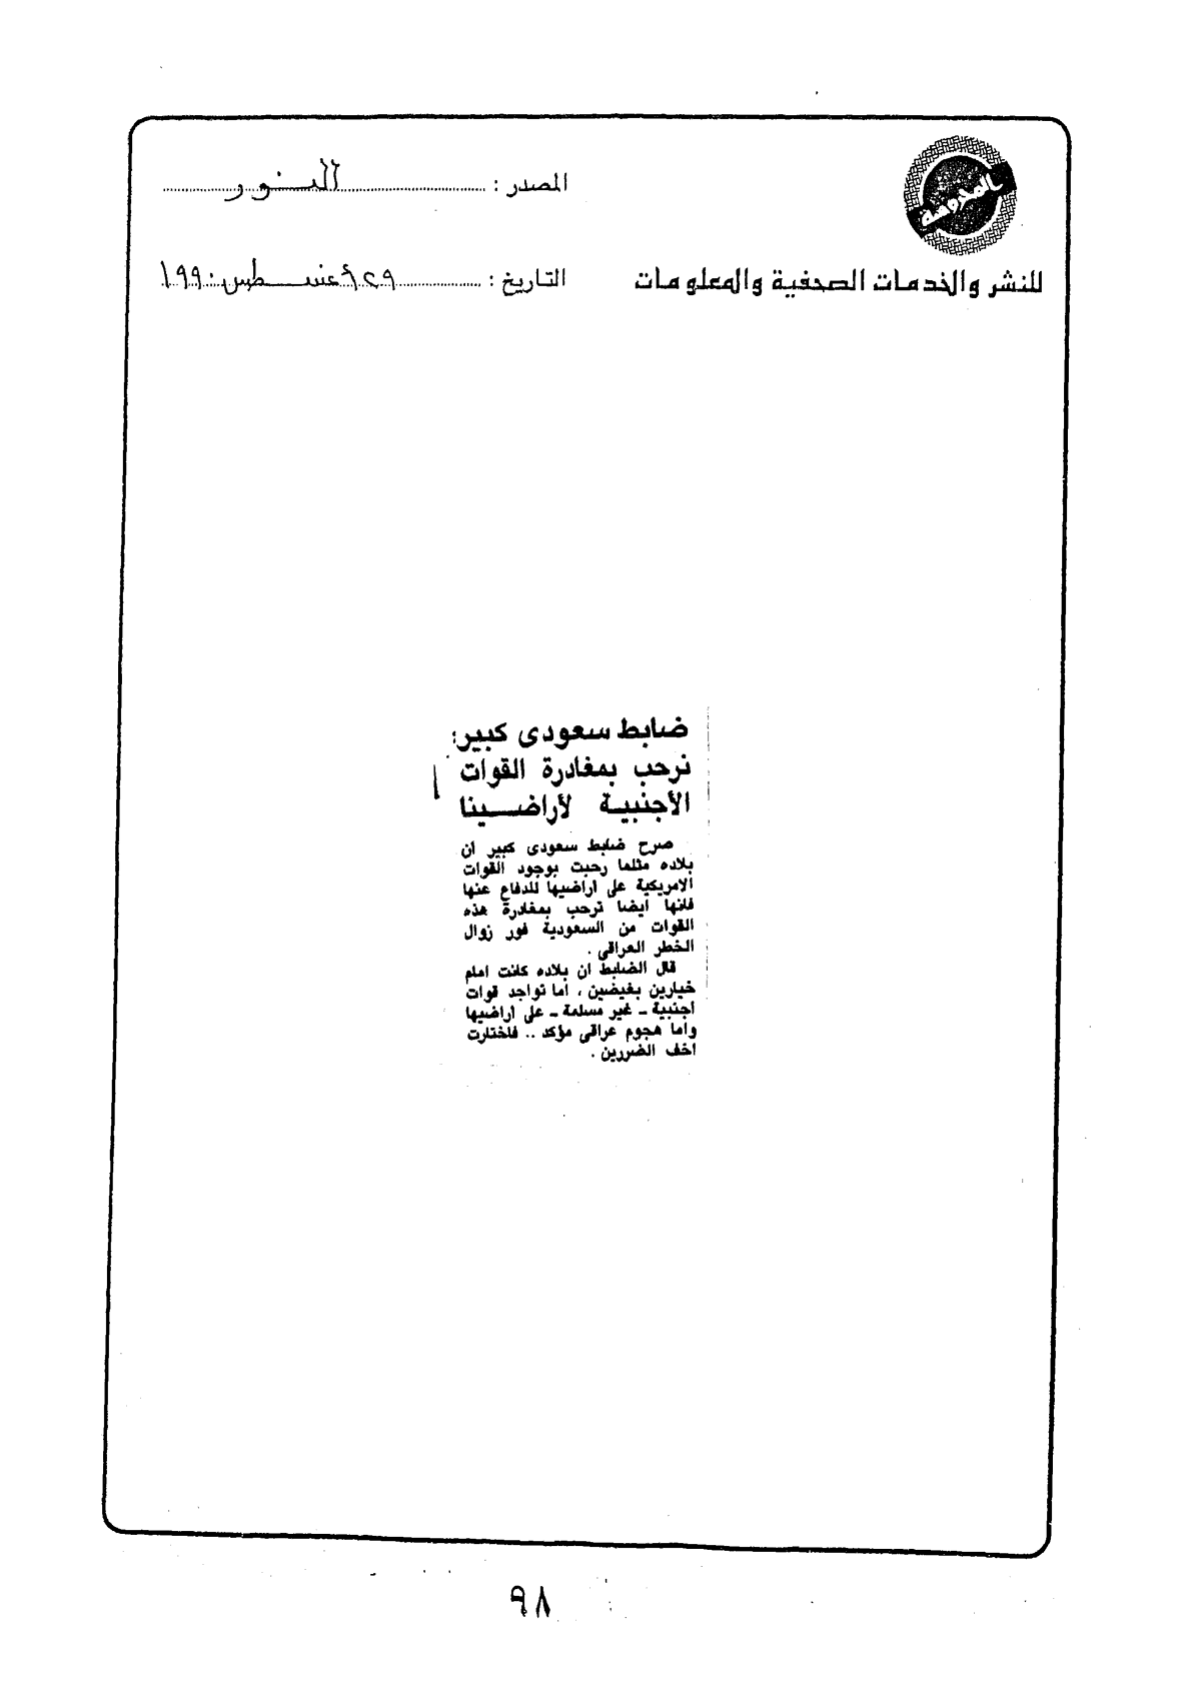 المحروسة
للنشر والخدمات الصحفية والمعلومات
المصدر : النور
التاريخ : ٢٩ أغسطس ١٩٩٠
ضابط سعودى كبير:
نرحب بمغادرة القوات
الأجنبية لأراضينا
صرح ضابط سعودى كبير ان
بلاده مثلما رحبت بوجود القوات
الامريكية على اراضيها للدفاع عنها
فانها ايضا ترحب بمغادرة هذه
القوات من السعودية فور زوال
الخطر العراقى .
قال الضابط ان بلاده كانت امام
خيارين بغيضين ، اما تواجد قوات
اجنبية - غير مسلمة - على اراضيها
واما هجوم عراقى مؤكد .. فاختارت
اخف الضررين .
٩٨